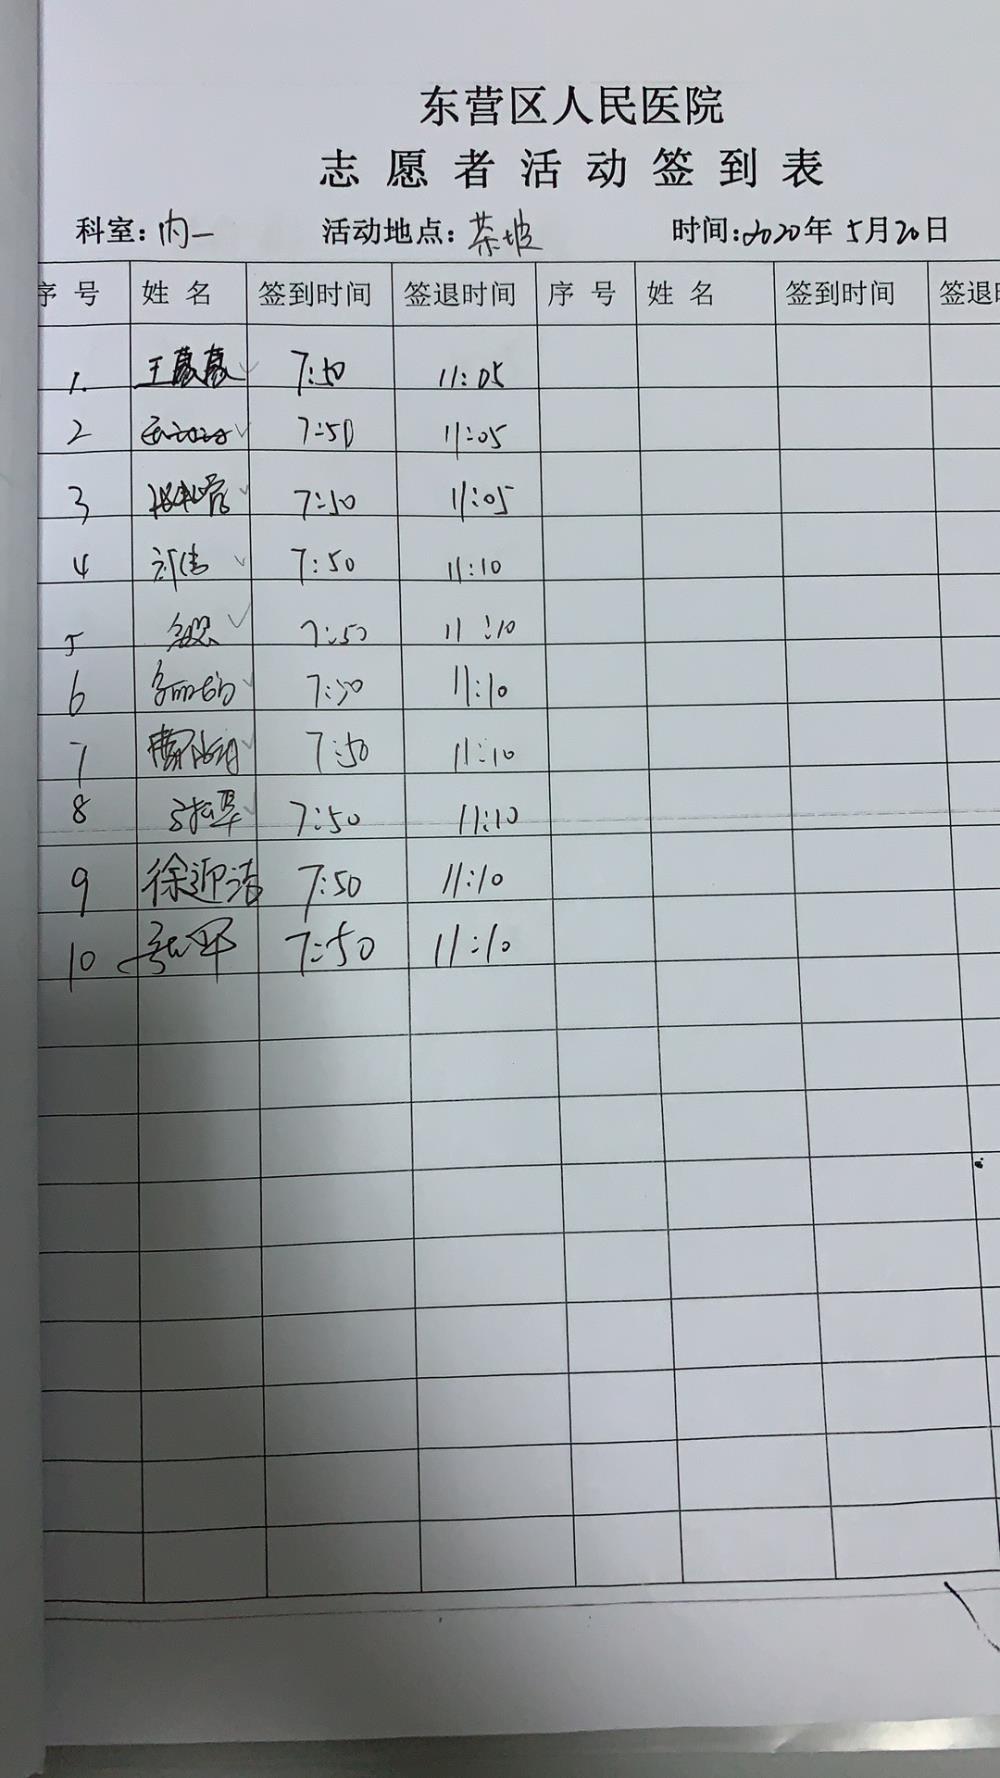 东营区人民医院
志愿者活动签到表
科室:内一 活动地点:茶坡 时间:2020年5月20日
序号 姓名 签到时间 签退时间 序号 姓名 签到时间 签退
1. 王蒙蒙 7:50 11:05
2 7:50 11:05
3 7:50 11:05
4 7:50 11:10
5 7:50 11:10
6 7:50 11:10
7 7:50 11:10
8 7:50 11:10
9 徐迎洁 7:50 11:10
10 7:50 11:10